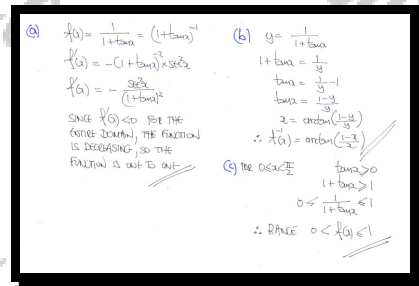 (a) f(x) = 1/(1+tanx) = (1+tanx)^-1
f'(x) = -(1+tanx)^-2 × sec²x
f'(x) = - sec²x/(1+tanx)²
SINCE f'(x) <0 FOR THE
ENTIRE DOMAIN, THE FUNCTION
IS DECREASING, SO THE
FUNCTION IS ONE TO ONE
(b) y = 1/(1+tanx)
1+tanx = 1/y
tanx = 1/y - 1
tanx = (1-y)/y
x = arctan((1-y)/y)
∴ f^-1(x) = arctan((1-x)/x)
(c) FOR 0≤x<π/2 tanx ≥ 0
1+tanx ≥ 1
0 < 1/(1+tanx) ≤ 1
∴ RANGE 0 < f(x) ≤ 1